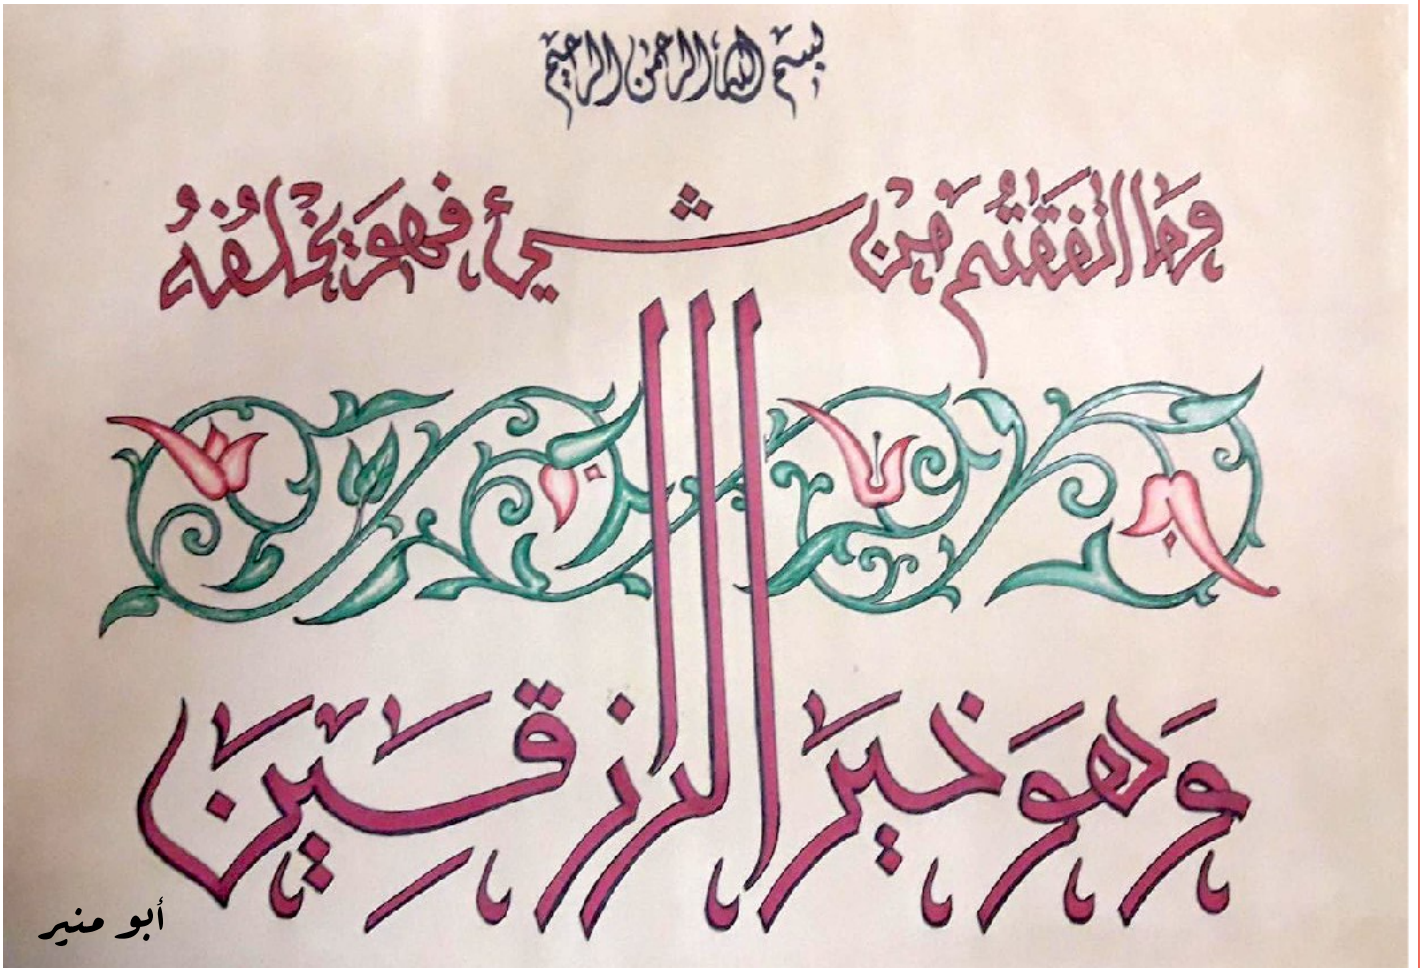 بسم الله الرحمن الرحيم
وما انفقتم من شيء فهو يخلفه
وهو خير الرزقين
أبو منير